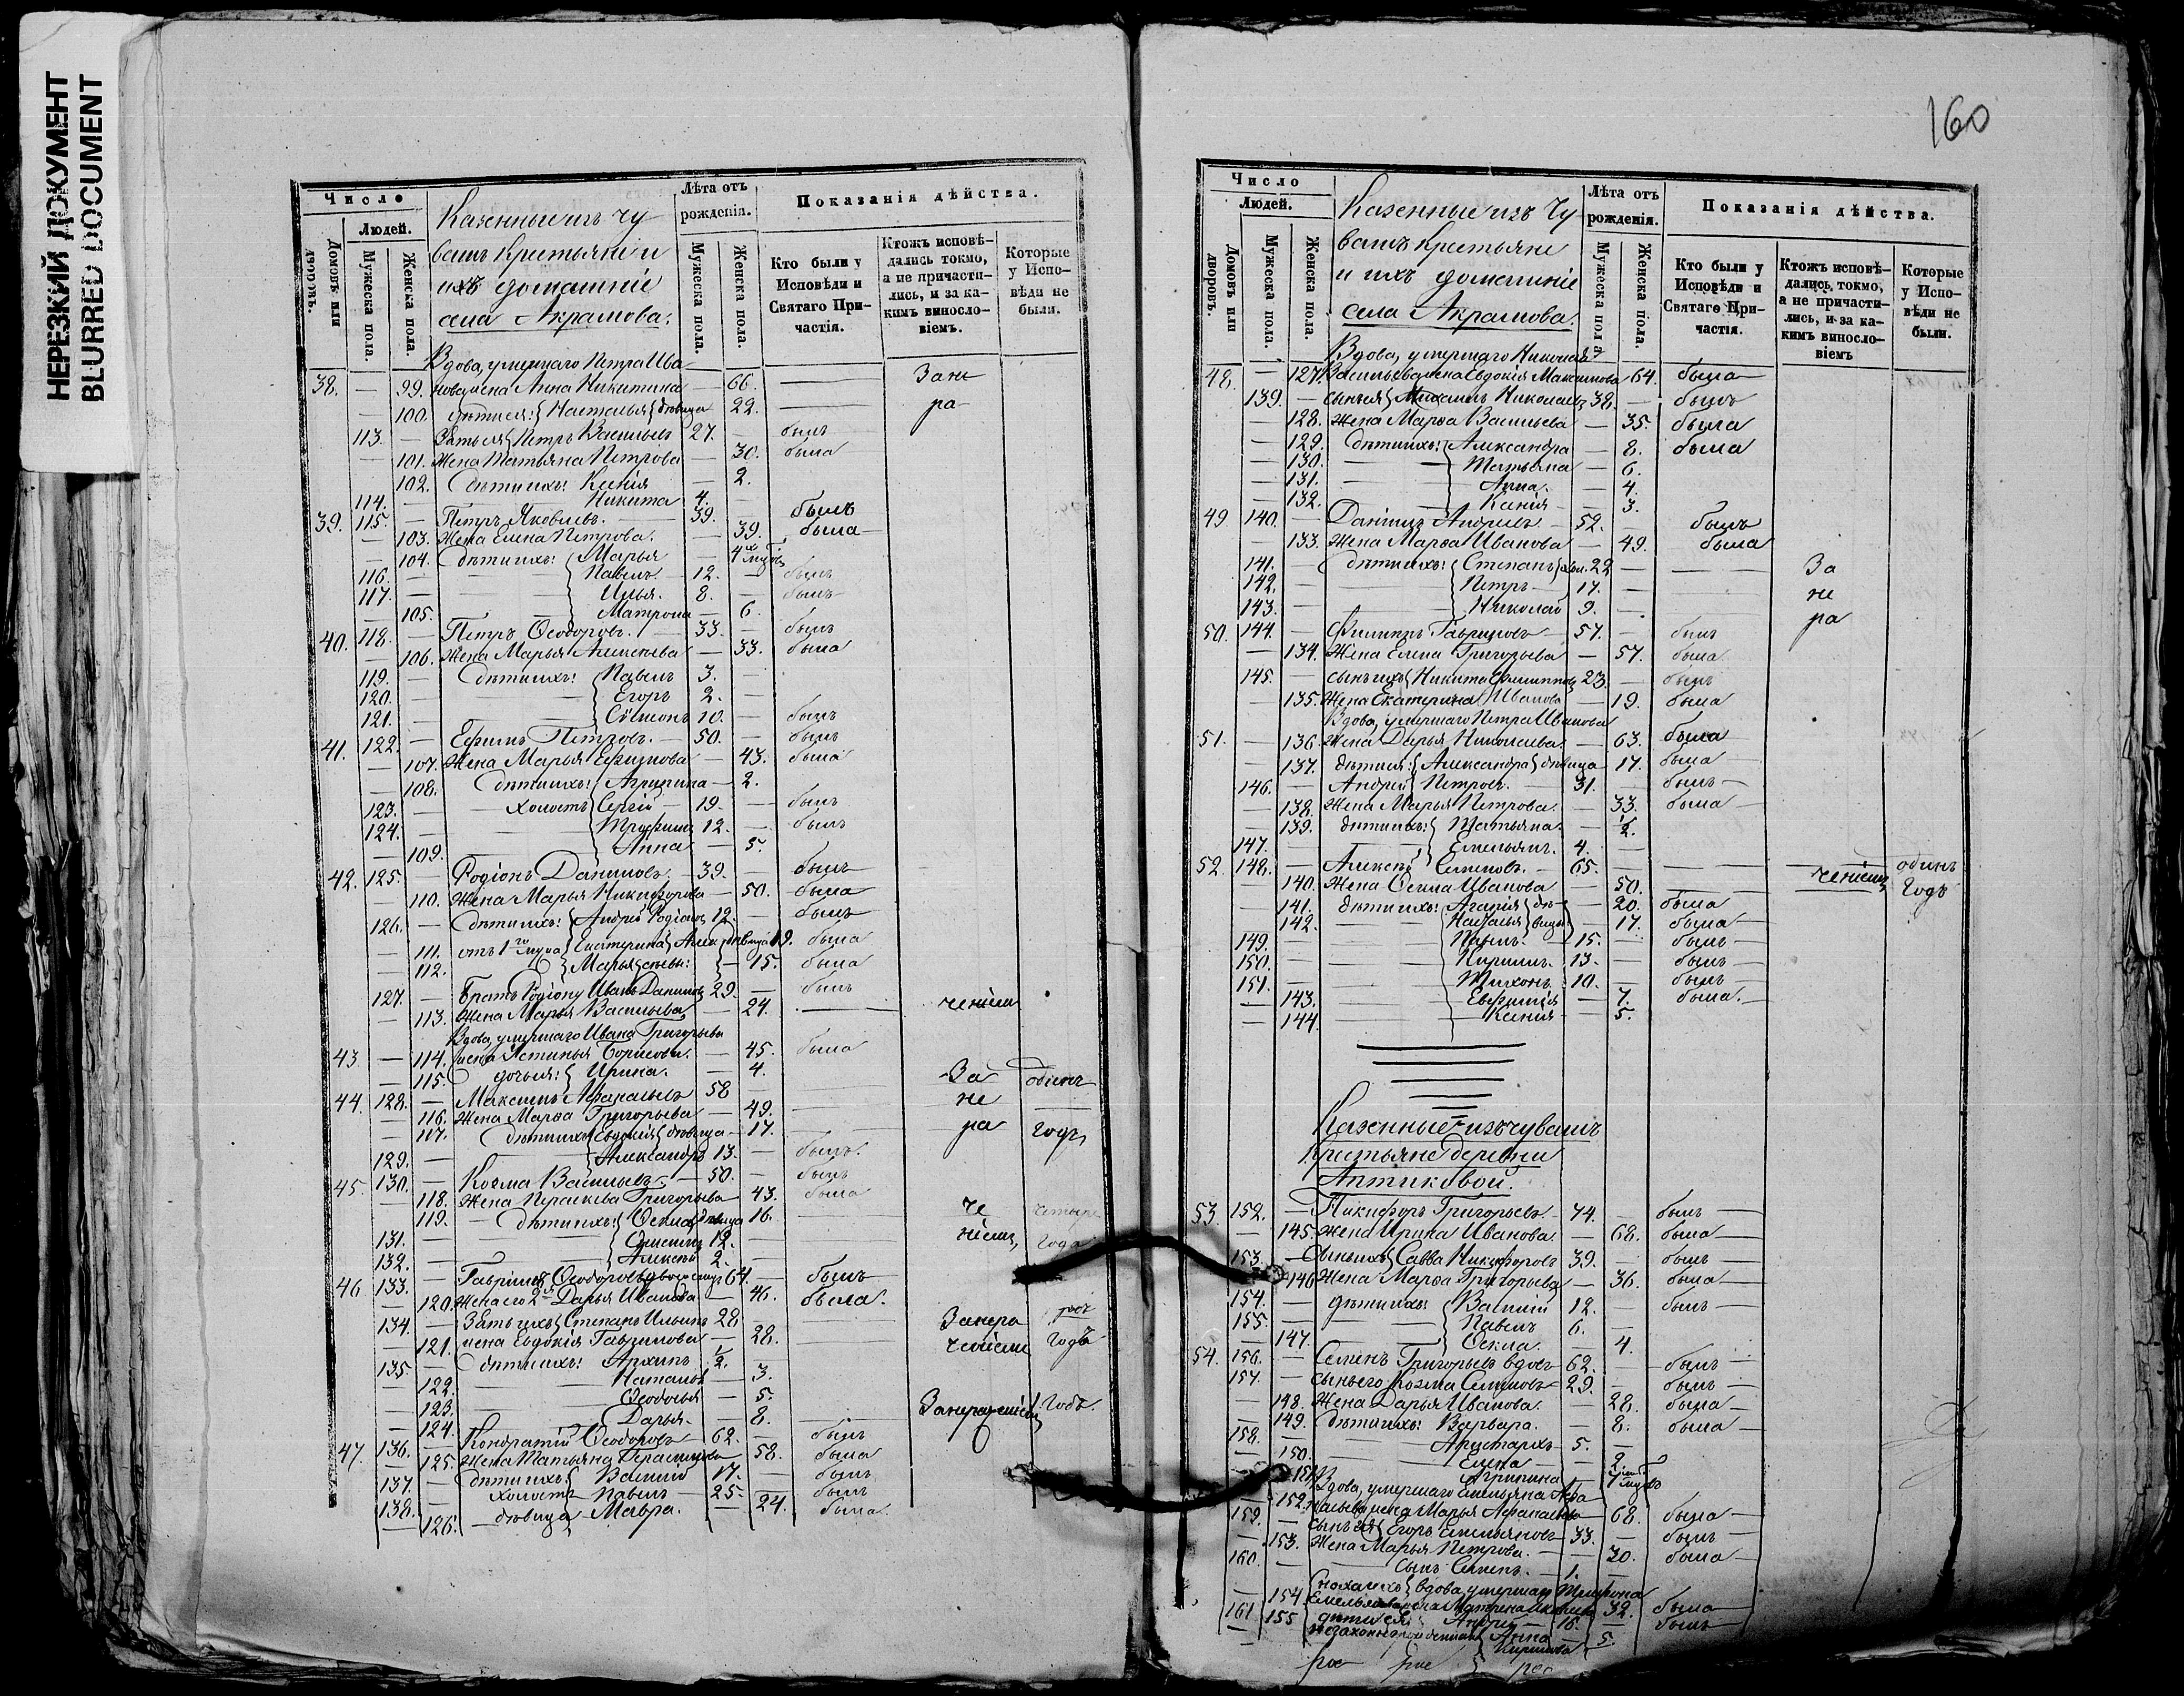 НЕРЕЗКИЙ ДОКУМЕНТ
BLURRED DOCUMENT
Число
Людей.
Домовъ или дворовъ.
Мужеска пола.
Женска пола.
Казенные изъ чу
вашъ крестьяне и
ихъ домашніе
села Акрамова.
Лѣта отъ рожденія.
Мужеска пола.
Женска пола.
Показанія дѣйства.
Кто были у Исповѣди и Святаго Причастія.
Ктожъ исповѣдались токмо, а не причастились, и за какимъ винословіемъ.
Которые у Исповѣди не были.
Вдова, умершаго Петра Ива
38. — 99. нова жена Анна Никитина — 66. — Зане
— 100. дѣти ея: Наталья дѣвица 22. — ра
113. — Зять ея Петръ Васильевъ 27. — былъ
— 101. Жена Татьяна Петрова — 30. была
— 102. Дѣти ихъ: Ксенія — 2.
114. — Никита 4. —
39. 115. — Петръ Яковлевъ. 39. — былъ
— 103. Жена Елена Петрова. — 39. была
— 104. Дѣти ихъ: Марья — 4
116. — Павелъ — 12. — былъ
117. — Илья. 8. — былъ
— 105. Матрона — 6.
40. 118. — Петръ Ѳеодоровъ. — 33. — былъ
— 106. Жена Марья Алексѣева — 33. была
119. — Дѣти ихъ: Павелъ 3. —
120. — Егоръ 2. —
121. — Симеонъ 10. — былъ
41. 122. — Ефимъ Петровъ. — 50. — былъ
— 107. Жена Марья Ефимова — 43. была
— 108. Дѣти ихъ: Агрипина — 2.
123. — холостъ Сергій — 19. — былъ
124. — Трофимъ 12. — былъ
— 109. Анна — 5.
42. 125. — Родіонъ Даниловъ. — 39. — былъ
— 110. Жена Марья Никифорова — 50. была
126. — Дѣти ихъ: Андрей Родіоновъ 12. — былъ
— 111. отъ 1го мужа Екатерина дѣвица 19. была
— 112. Марья — 15. была
127. — Братъ Родіону Иванъ Даниловъ 29. — былъ
— 113. Жена Марья Васильева — 24. — ченіем
Вдова, умершаго Ивана Григорьева
43 — 114. жена Устинья Борисова. — 45. была
— 115. дочь ея: Ирина. — 4.
44. 128. — Максимъ Афанасьевъ 58 — За одинъ
— 116. Жена Марѳа Григорьева — 49. — не
— 117. Дѣти ихъ Евдокія дѣвица — 17. — ра годъ
129. — Александръ 13. — былъ.
45. 130. — Козма Васильевъ — 50. — былъ
— 118. Жена Параскева Григорьева 43. была
— 119. Дѣти ихъ: Ѳекла дѣвица 16. — че четыре
131. — 12. — ніемъ, года
132. — Алексѣй 2. —
46 133. — Гавріилъ Ѳеодоровъ 64. — былъ
— 120. Жена его 2я Дарья Иванова — 46. была.
134. — Зять ихъ Степанъ Ильинъ 28 — Занера
— 121. жена Евдокія Гаврилова — 28. — ченіем годъ
135. — Дѣти ихъ: Архипъ 1/2. —
— 122. Наталья — 3.
— 123. Ѳеодосья — 5.
— 124. Дарья. — 8. Занераченіемъ Годъ.
47. 136. — Кондратій Ѳеодоровъ 62. — былъ
— 125. Жена Татьяна Герасимова — 58. была
137. — Дѣти ихъ Василій 17. — былъ
138. — холостъ Павелъ — 25. — былъ
— 126. дѣвица Мавра. — 24. была.
160
Число
Людей.
Домовъ или дворовъ.
Мужеска пола.
Женска пола.
Казенные изъ Чу
вашъ крестьяне
и ихъ домашніе
села Акрамова.
Лѣта отъ рожденія.
Мужеска пола
Женска пола.
Показанія дѣйства.
Кто были у Исповѣди и Святаго Причастія.
Ктожъ исповѣдались токмо, а не причастились, и за какимъ винословіемъ
Которые у Исповѣди не были.
Вдова, умершаго Николая
48. — 127. Васильева жена Евдокія Максимова 64. была
139. — сынъ ея Михаилъ Николаевъ 38. — былъ
— 128. Жена Марѳа Васильева — 35. была
— 129. Дѣти ихъ: Александра — 8. была
— 130. Татьяна — 6.
— 131. Анна. — 4.
— 132. Ксенія — 3.
49 140. — Даніилъ Андреевъ — 52. — былъ
— 133. Жена Марѳа Иванова — 49. была
141. — Дѣти ихъ: Степанъ 22 — За
142. — Петръ — 17. — не
143. — Николай 9. — ра
50. 144. — Филиппъ Гавриловъ — 57. — былъ
— 134. Жена Елена Григорьева — 57. была
145. — сынъ ихъ Никита Филипповъ 23. — былъ
— 135. Жена Екатерина Иванова — 19. была
Вдова, умершаго Петра Иванова
51. — 136. Жена Дарья Николаева. — 63. была
— 137. дѣти ея: Александра дѣвица — 17. была
146. — Андрей Петровъ. — 31. — былъ
— 138. Жена Марья Петрова. — 33. была
— 139. дѣти ихъ: Татьяна. — 1/2.
147. — Емельянъ. 4. —
52. 148. — Алексѣй Семеновъ. — 65. — ченіемъ одинъ
— 140. Жена Ѳекла Иванова — 50. — годъ
— 141. дѣти ихъ: Агафія дѣ — 20. была
— 142. Наталья вицы — 17. была
149. — Павелъ — 15. — былъ
150. — Кириллъ. 13. — былъ
151. — Тихонъ. 10. — былъ
— 143. Евфимія — 7. была.
— 144. Ксенія — 5.
Казенные изъ чувашъ
Крестьяне деревни
Аптиковой.
53. 152. — Никифоръ Григорьевъ. 74. — былъ
— 145. Жена Ирина Иванова. — 68. была
153. — Сынъ ихъ Савва Никифоровъ 39. — былъ
— 146 Жена Марѳа Григорьева — 36. была
154. — дѣти ихъ Василій 12. — былъ
155. — Павелъ 6. —
— 147. Ѳекла. — 4.
54. 156. — Семенъ Григорьевъ вдовъ 62. — былъ
157. — сынъ его Козма Семеновъ 29. — былъ
— 148. Жена Дарья Иванова. — 28. была
— 149. Дѣти ихъ: Варвара. — 8. была
158. — Аристархъ 5. —
— 150. Елена — 2.
— 151. Агрипина —
Вдова, умершаго Емельяна Афа
— 152. насьева жена Марья Афанасьева — 68. была
159. — Сынъ ея Егоръ Емельяновъ 33. — былъ
— 153. Жена Марья Петрова. — 30. была
160. — Сынъ Семенъ. — 1. —
Сноха ихъ вдова, умершаго
— 154 Матрена 32. была
161 дѣти ея: Андрей — 16. — былъ
— 155 незаконнорожденная Анна — 5.